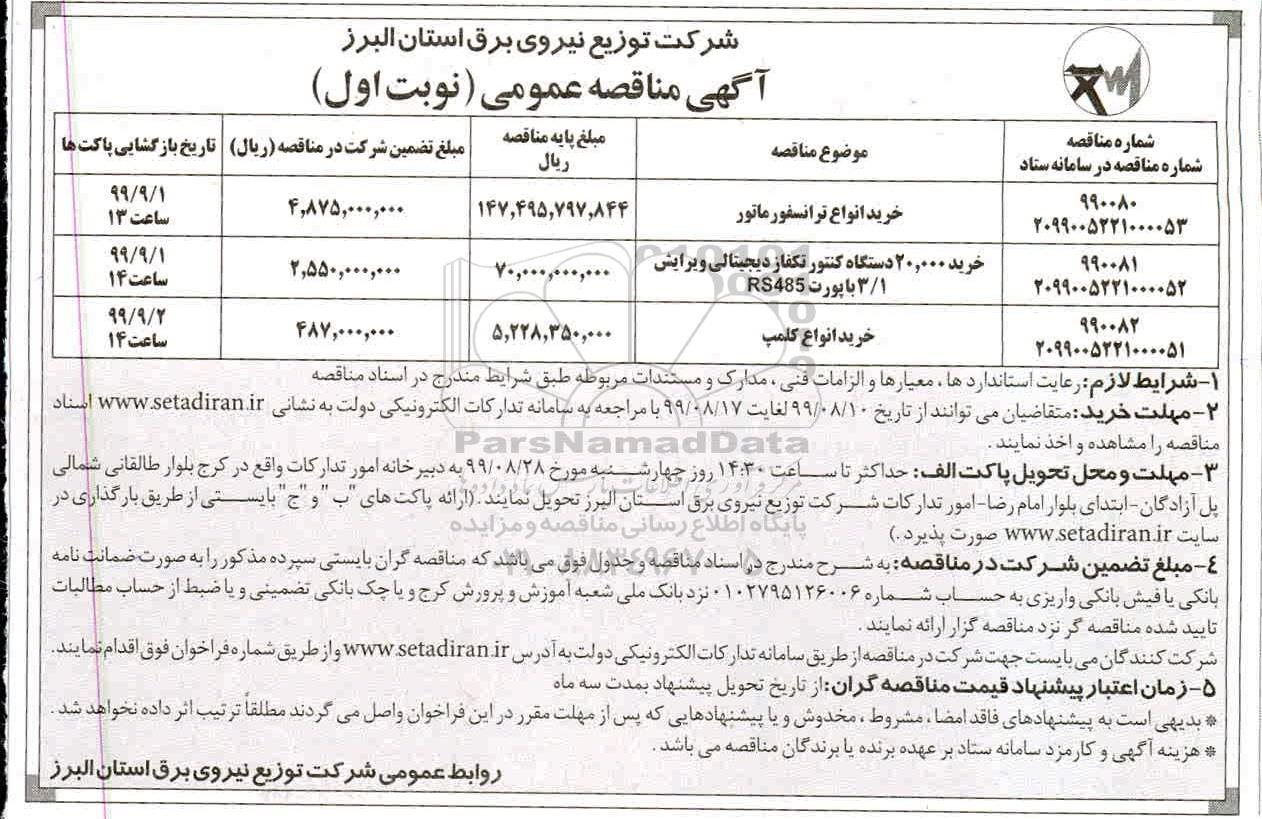 شرکت توزیع نیروی برق استان البرز
آگهی مناقصه عمومی (نوبت اول)
شماره مناقصه
شماره مناقصه در سامانه ستاد
موضوع مناقصه
مبلغ پایه مناقصه
ریال
مبلغ تضمین شرکت در مناقصه (ریال)
تاریخ بازگشایی پاکت ها
۹۹۰۰۸۰
۲۰۹۹۰۰۵۲۲۱۰۰۰۰۵۳
خرید انواع ترانسفورماتور
۱۴۷,۴۹۵,۷۹۷,۸۴۴
۴,۸۷۵,۰۰۰,۰۰۰
۹۹/۹/۱
ساعت ۱۳
۹۹۰۰۸۱
۲۰۹۹۰۰۵۲۲۱۰۰۰۰۵۲
خرید ۲۰,۰۰۰ دستگاه کنتور تکفاز دیجیتالی ویرایش
۳/۱ با پورت RS485
۷۰,۰۰۰,۰۰۰,۰۰۰
۲,۵۵۰,۰۰۰,۰۰۰
۹۹/۹/۱
ساعت ۱۴
۹۹۰۰۸۲
۲۰۹۹۰۰۵۲۲۱۰۰۰۰۵۱
خرید انواع کلمپ
۵,۲۲۸,۳۵۰,۰۰۰
۴۸۷,۰۰۰,۰۰۰
۹۹/۹/۲
ساعت ۱۴
۱-شرایط لازم: رعایت استاندارد ها ، معیارها و الزامات فنی ، مدارک و مستندات مربوطه طبق شرایط مندرج در اسناد مناقصه
۲-مهلت خرید: متقاضیان می توانند از تاریخ ۹۹/۰۸/۱۰ لغایت ۹۹/۰۸/۱۷ با مراجعه به سامانه تدارکات الکترونیکی دولت به نشانی www.setadiran.ir اسناد
مناقصه را مشاهده و اخذ نمایند .
ParsNamadData
۳-مهلت و محل تحویل پاکت الف: حداکثر تا ساعت ۱۴:۳۰ روز چهارشنبه مورخ ۹۹/۰۸/۲۸ به دبیرخانه امور تدارکات واقع در کرج بلوار طالقانی شمالی
پل آزادگان-ابتدای بلوار امام رضا-امور تدارکات شرکت توزیع نیروی برق استان البرز تحویل نمایند .(ارائه پاکت های "ب" و "ج" بایستی از طریق بارگذاری در
پایگاه اطلاع رسانی مناقصه و مزایده
سایت www.setadiran.ir صورت پذیرد .)
۴-مبلغ تضمین شرکت در مناقصه: به شرح مندرج در اسناد مناقصه و جدول فوق می باشد که مناقصه گران بایستی سپرده مذکور را به صورت ضمانت نامه
بانکی یا فیش بانکی واریزی به حساب شماره ۰۱۰۲۷۹۵۱۲۶۰۰۶ نزد بانک ملی شعبه آموزش و پرورش کرج و یا چک بانکی تضمینی و یا ضبط از حساب مطالبات
تایید شده مناقصه گر نزد مناقصه گزار ارائه نمایند .
شرکت کنندگان می بایست جهت شرکت در مناقصه از طریق سامانه تدارکات الکترونیکی دولت به آدرس www.setadiran.ir و از طریق شماره فراخوان فوق اقدام نمایند.
۵-زمان اعتبار پیشنهاد قیمت مناقصه گران: از تاریخ تحویل پیشنهاد بمدت سه ماه
* بدیهی است به پیشنهادهای فاقد امضا ، مشروط ، مخدوش و یا پیشنهادهایی که پس از مهلت مقرر در این فراخوان واصل می گردند مطلقاً ترتیب اثر داده نخواهد شد .
* هزینه آگهی و کارمزد سامانه ستاد بر عهده برنده یا برندگان مناقصه می باشد .
روابط عمومی شرکت توزیع نیروی برق استان البرز